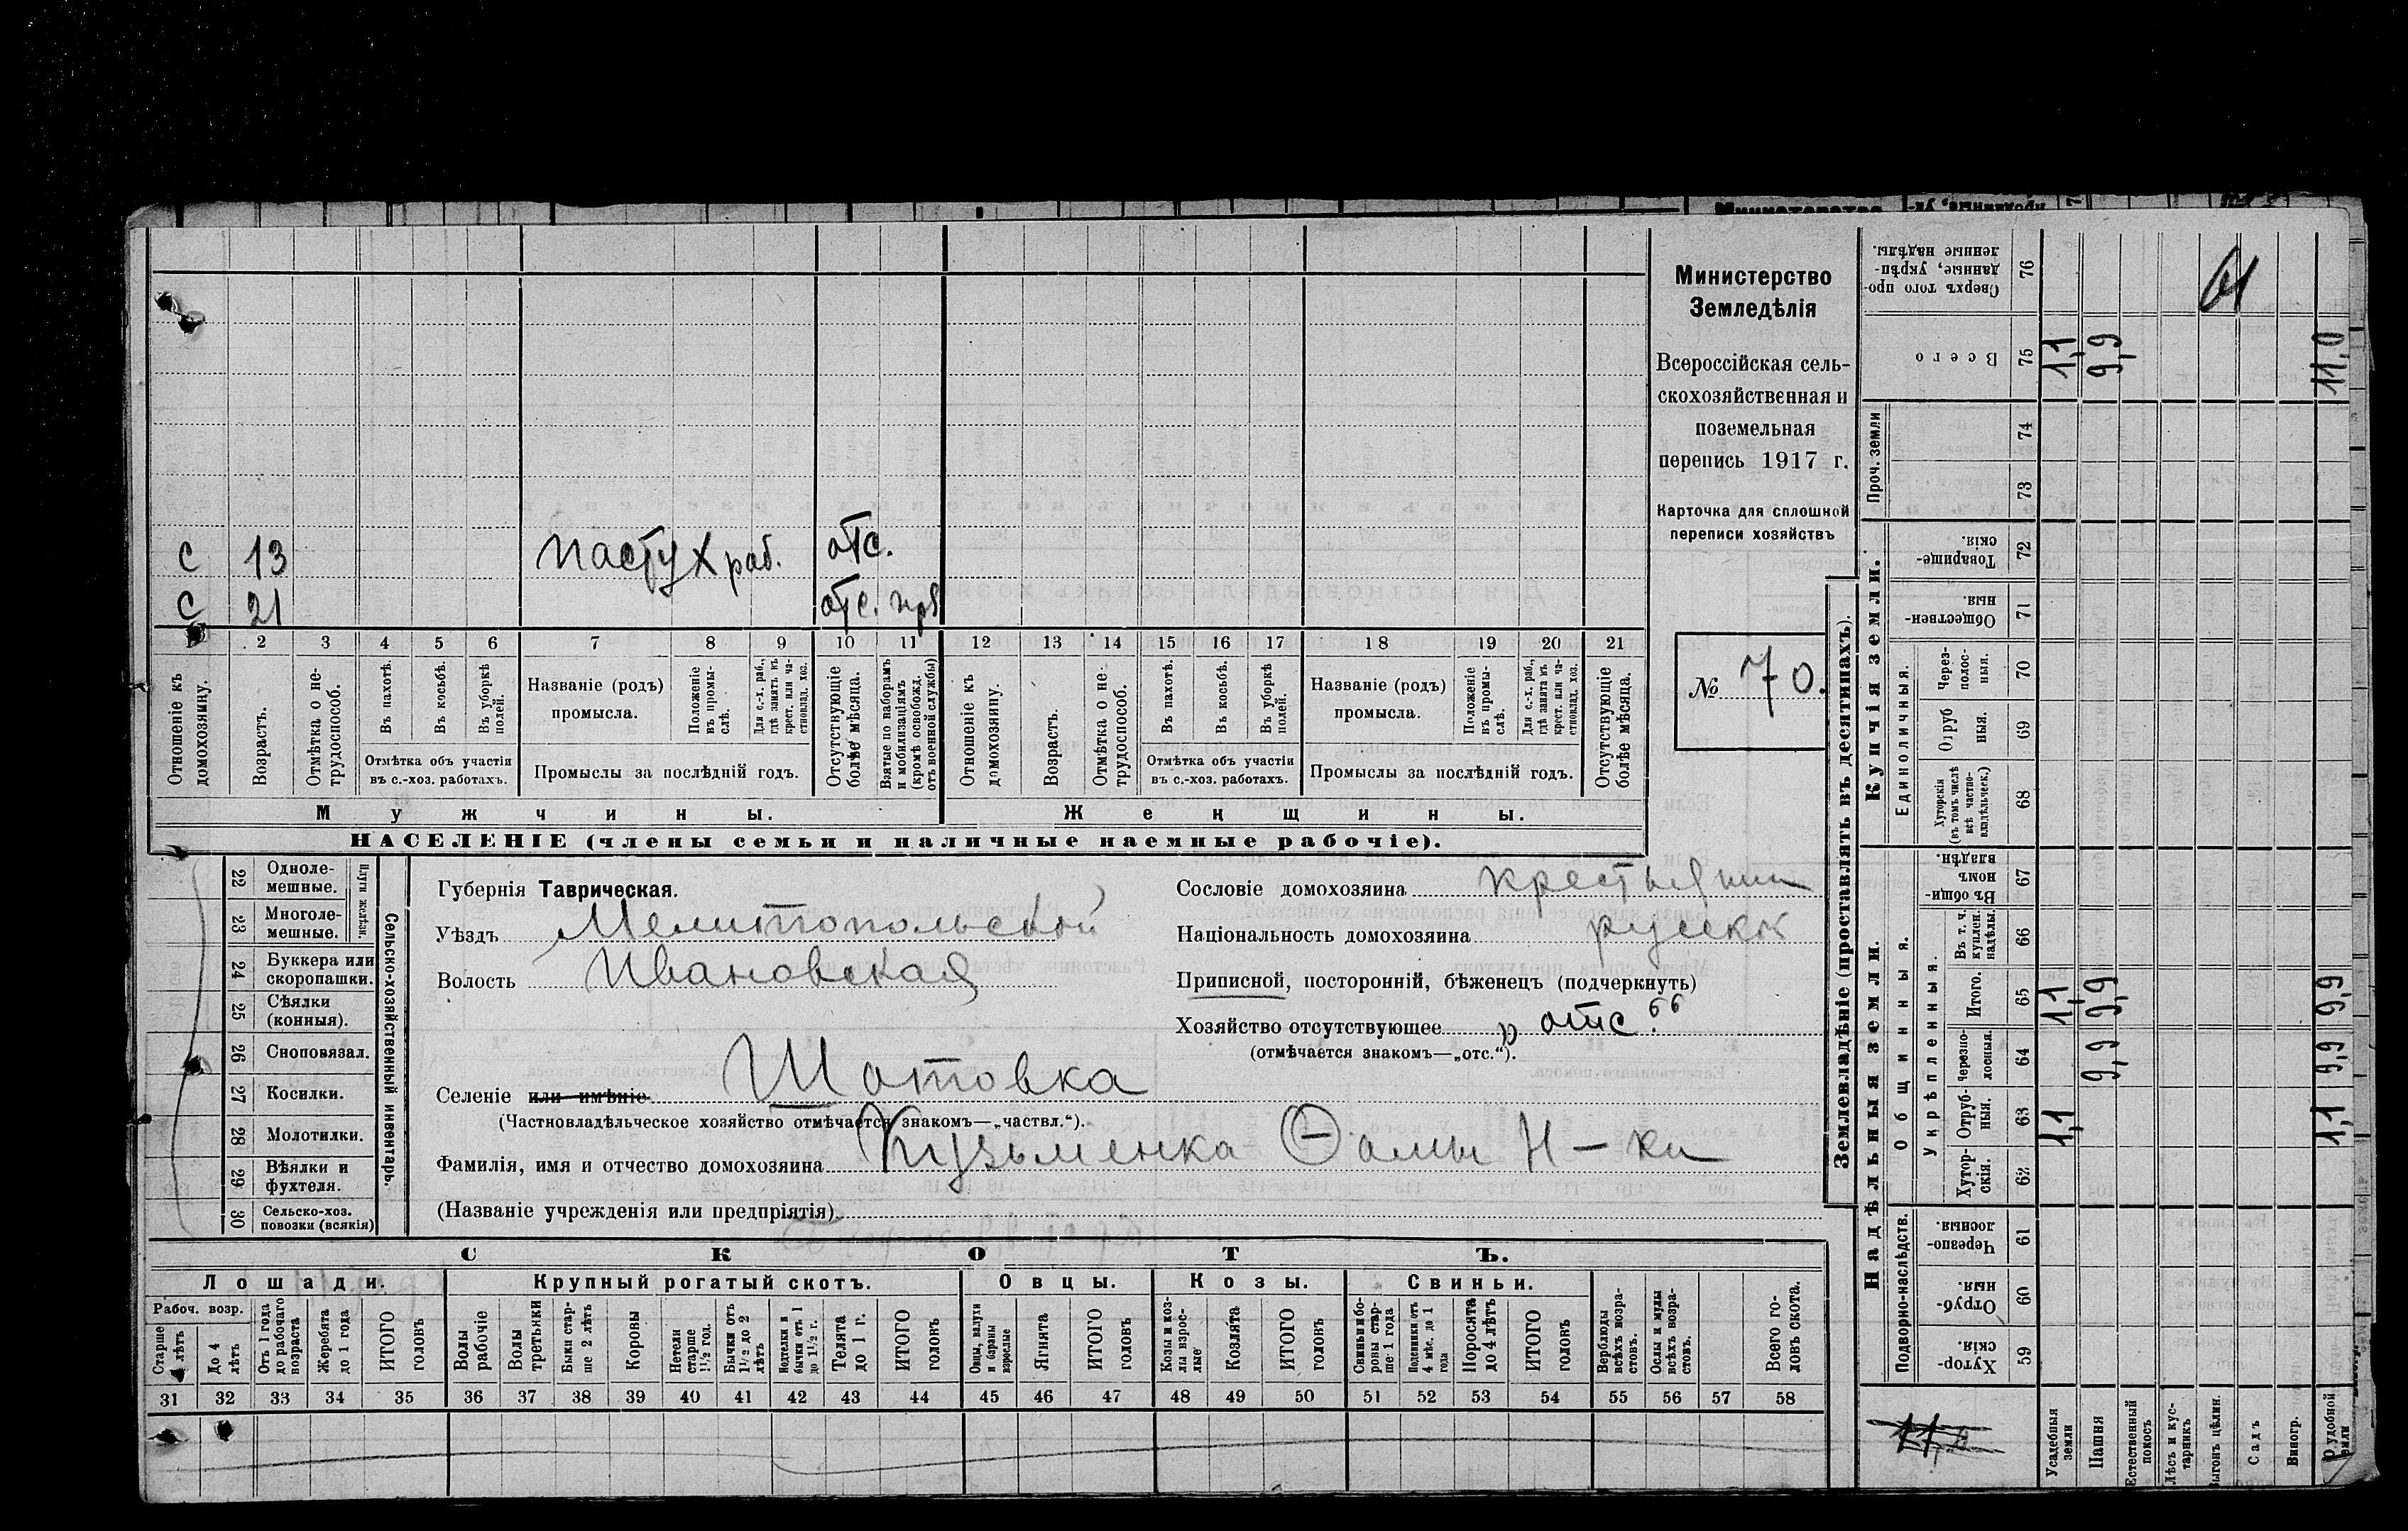 Министерство
Земледѣлія
Всероссійская сель-
скохозяйственная и
поземельная
перепись 1917 г.
Карточка для сплошной
переписи хозяйствъ
№ 70.
С 13 пастух раб. отс.
С 21 отс.
2 3 4 5 6 7 8 9 10 11 12 13 14 15 16 17 18 19 20 21
Отношеніе къ домохозяину.
Возрастъ.
Отмѣтка о не-
трудоспособ.
Въ пахотѣ.
Въ косьбѣ.
Въ уборкѣ
полей.
Отмѣтка объ участіи
въ с.-хоз. работахъ.
Названіе (родъ)
промысла.
Положеніе
въ промы-
слѣ.
Для с.-х. раб.,
гдѣ занятъ въ
крест. или ча-
стновлад. хоз.
Промыслы за послѣдній годъ.
Отсутствующіе
болѣе мѣсяца.
Взятые по наборамъ
и мобилизаціямъ
(кромѣ освобожд.
отъ военной службы)
Отношеніе къ
домохозяину.
Возрастъ.
Отмѣтка о не-
трудоспособ.
Въ пахотѣ.
Въ косьбѣ.
Въ уборкѣ
полей.
Отмѣтка объ участіи
въ с.-хоз. работахъ.
Названіе (родъ)
промысла.
Положеніе
въ промы-
слѣ.
Для с.-х. раб.,
гдѣ занята въ
крест. или ча-
стновлад. хоз.
Промыслы за послѣдній годъ.
Отсутствующіе
болѣе мѣсяца.
Мужчины.
Женщины.
НАСЕЛЕНІЕ (члены семьи и наличные наемные рабочіе).
22 Одноле-
мешные.
23 Многоле-
мешные.
Плуги желѣзн.
24 Буккера или
скоропашки.
25 Сѣялки
(конныя).
26 Сноповязал.
27 Косилки.
28 Молотилки.
29 Вѣялки и
фухтеля.
30 Сельско-хоз.
повозки (всякія)
Сельско-хозяйственный инвентарь.
Губернія Таврическая.
Уѣздъ Мелитопольской
Волость Ивановская
Селеніе или имѣніе Шотовка
(Частновладѣльческое хозяйство отмѣчается знакомъ—„частвл.“).
Фамилія, имя и отчество домохозяина Кузьменка Ѳомы Н-ки
(Названіе учрежденія или предпріятія)
Сословіе домохозяина крестьянин
Національность домохозяина русск
Приписной, посторонній, бѣженецъ (подчеркнуть)
Хозяйство отсутствующее „отс.“
(отмѣчается знакомъ—„отс.“).
СКОТЪ.
Лошади.
Рабоч. возр.
Старше
4 лѣтъ
До 4
лѣтъ
Отъ 1 года
до рабочаго
возраста
Жеребята
до 1 года
ИТОГО
головъ
Крупный рогатый скотъ.
Волы
рабочіе
Волы
третьяки
Быки стар-
ше 2 лѣтъ
Коровы
Нетели
старше
1½ год.
Бычки отъ
1½ до 2
лѣтъ
Нетели и
бычки отъ 1
до 1½ г.
Телята
до 1 г.
ИТОГО
головъ
Овцы.
Овцы, валухи
и бараны
взрослые
Ягнята
ИТОГО
головъ
Козы.
Козы и коз-
лы взрос-
лые
Козлята
ИТОГО
головъ
Свиньи.
Свиньи и бо-
ровы стар-
ше 1 года
Подсвинки отъ
4 мѣс. до 1
года
Поросята
до 4 лѣтъ
ИТОГО
головъ
Верблюды
всѣхъ возра-
стовъ.
Ослы и мулы
всѣхъ возра-
стовъ.
Всего го-
ловъ скота.
31 32 33 34 35 36 37 38 39 40 41 42 43 44 45 46 47 48 49 50 51 52 53 54 55 56 57 58
Землевладѣніе (проставлять въ десятинахъ).
Купчія земли.
Надѣльныя земли.
Сверхъ того про-
данные, укрѣп-
ленные надѣлы.
76
Всего
75 1,1 9,9 11,0
Проч. земли
74
73
Товарище-
скія.
72
Обществен-
ныя.
71
Единоличныя.
Через-
полос-
ныя.
70
Отруб
ныя.
69
Хуторскія
(въ томъ числѣ
всѣ частно-
владѣльческ.)
68
Общинныя.
Въ общи-
номъ
владѣн.
67
Укрѣпленныя.
Въ т. ч.
куплен.
надѣлы.
66
Итого.
65 1,1 9,9 9,9
Черезпо-
лосныя.
64 9,9 9,9
Отруб-
ныя.
63 1,1 1,1
Хутор-
скія.
62
Подворно-наслѣдств.
Черезпо-
лосныя.
61
Отруб-
ныя.
60
Хутор-
скія.
59
Усадебныя
земли
Пашня
Естественный
покосъ
Лѣсъ и кус-
тарникъ
Выгонъ цѣлин.
Садъ
Виногр.
удобной
земли